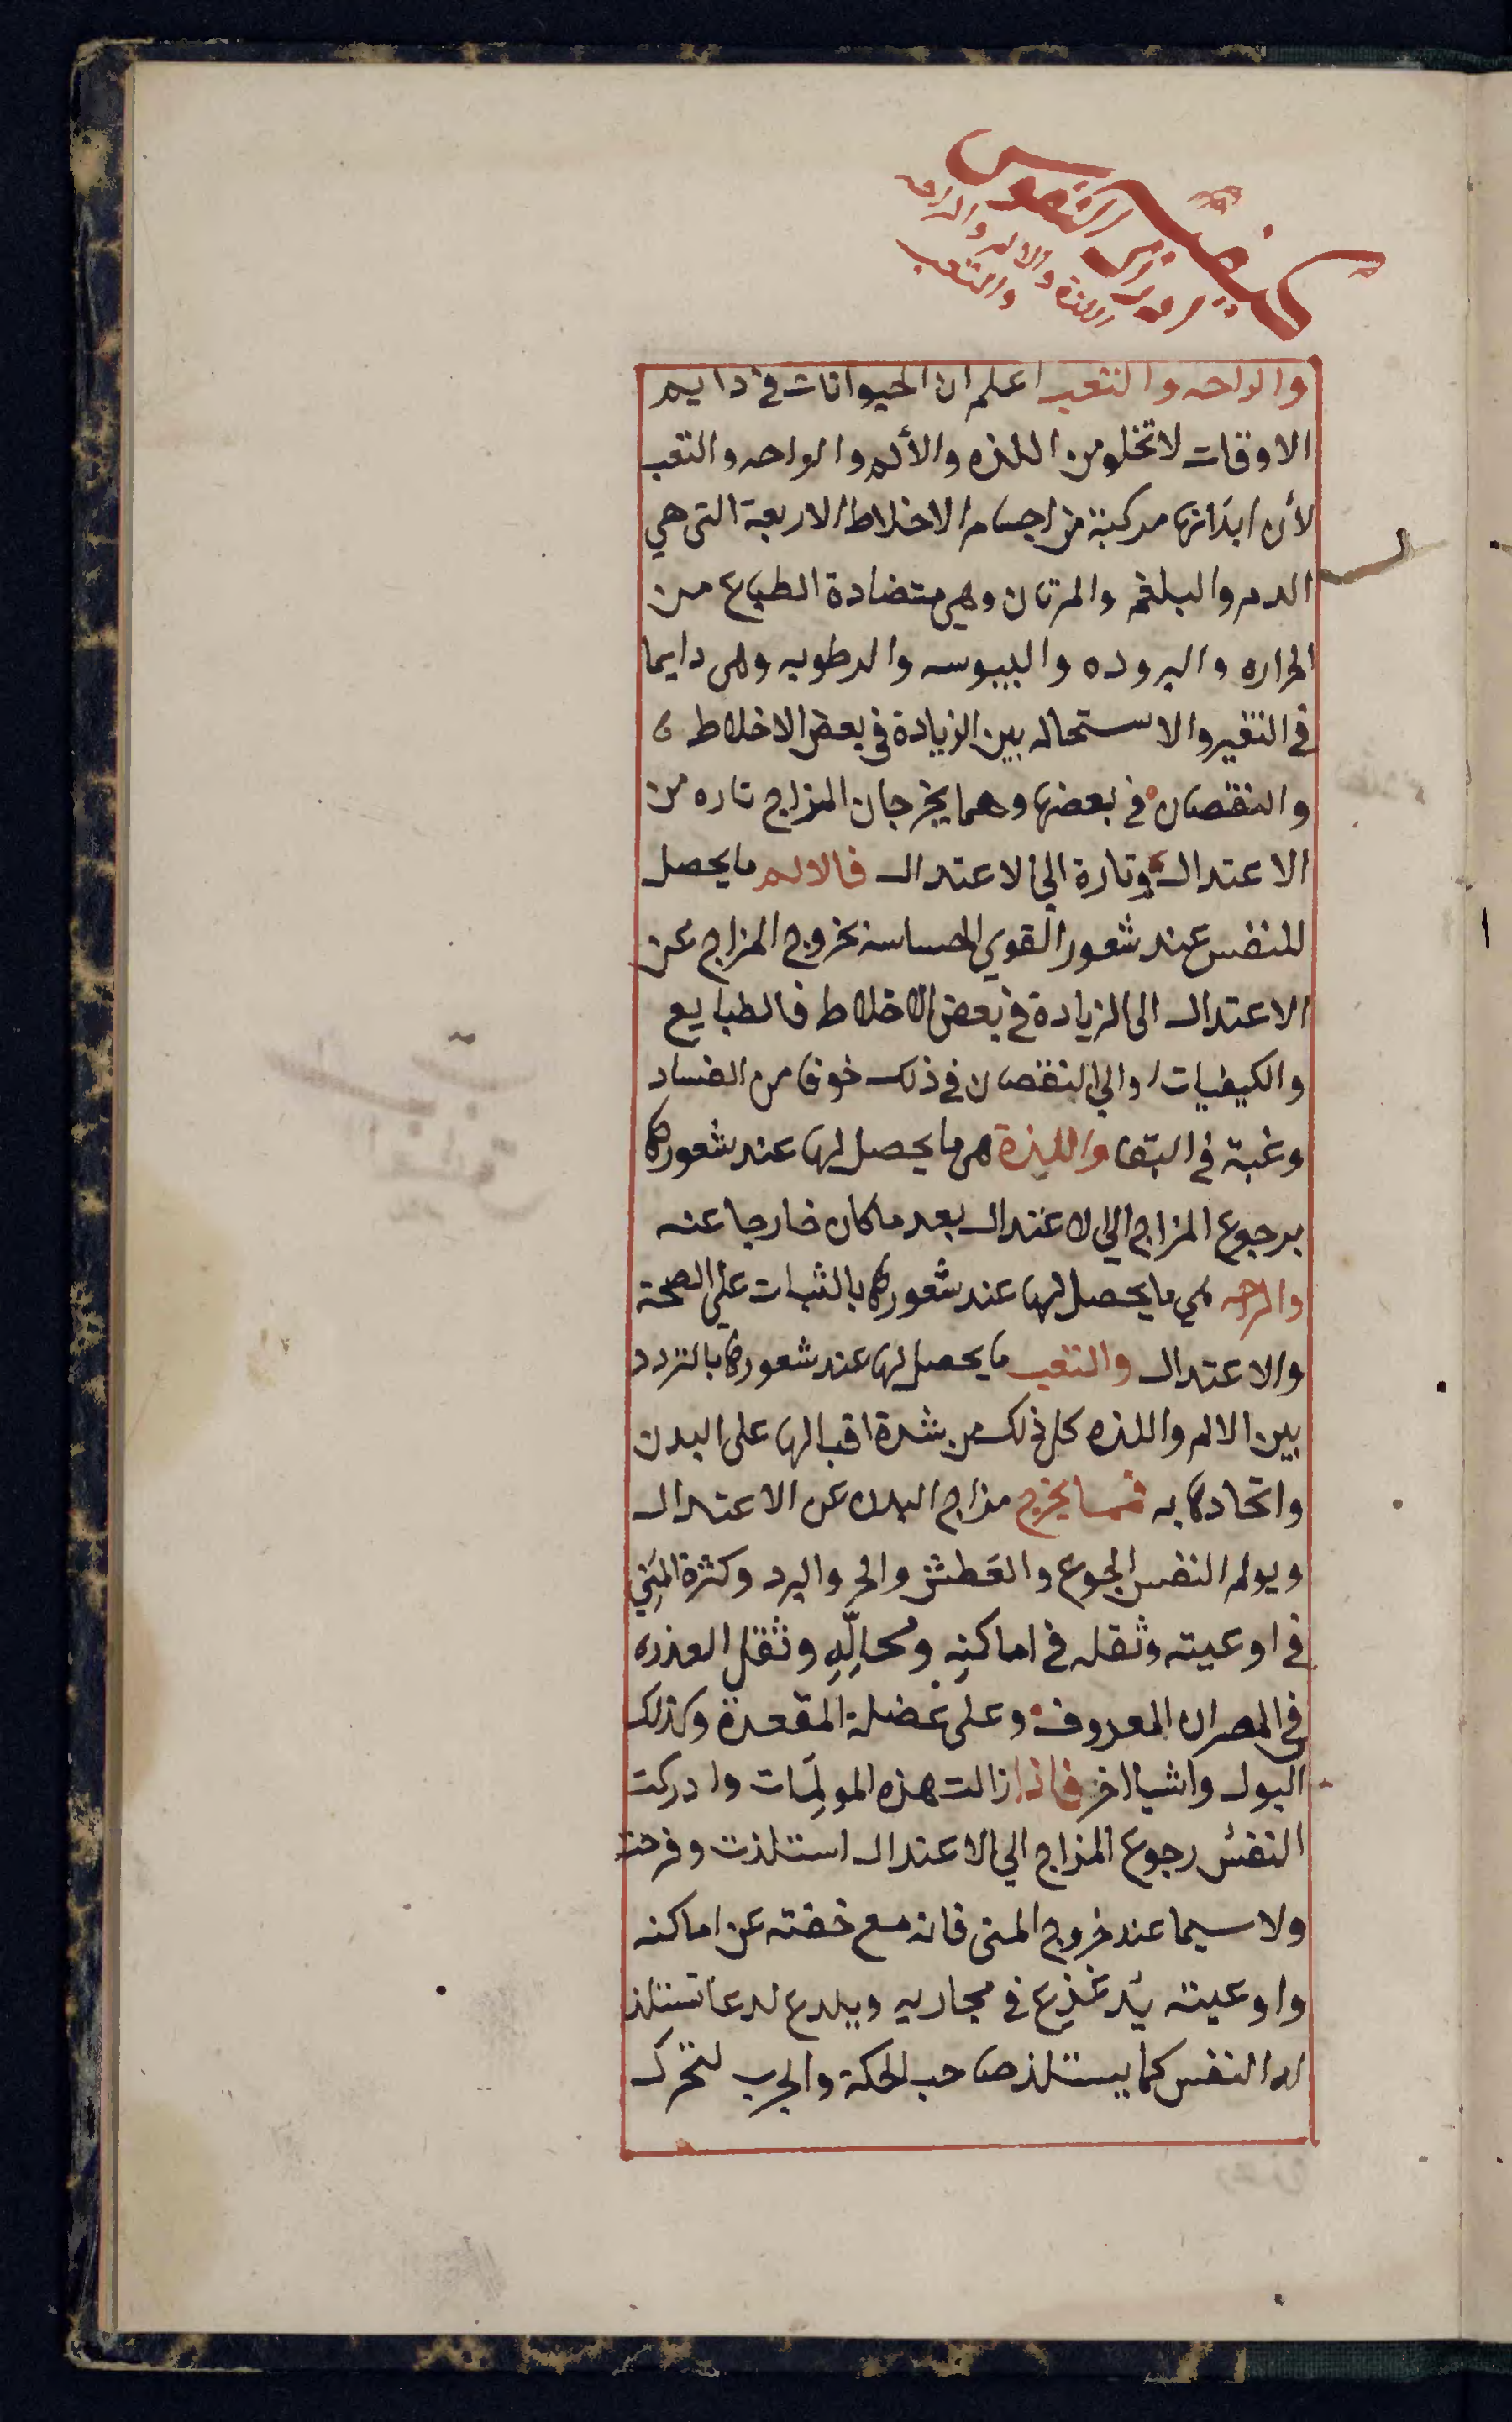 كيفية
ادراك النفوس
اللذة والالم والراحه
والتعب
والراحه والتعب اعلم ان الحيوانات في دايم
الاوقات لا تخلو من اللذه والألم والراحه والتعب
لأن ابدانها مركبة من اجسام الاخلاط الاربعة التي هي
الدم والبلغم والمرتان وهي متضادة الطباع من
الحراره والبروده واليبوسه والرطوبه وهى دايما
في التغير والاستحاله بين الزيادة في بعض الاخلاط
والنقصان في بعضها وهما يخرجان المزاج تاره من
الاعتدال وتارة الي الاعتدال فالالم ما يحصل
للنفس عند شعور القوي الحساسة بخروج المزاج عن
الاعتدال الى الزيادة في بعض الاخلاط فالطبايع
والكيفيات او الي النقصان في ذلك خوفا من الفساد
وغبة في البقا واللذة هي ما يحصل لها عند شعورها
برجوع المزاج الي الاعتدال بعد ما كان خارجا عنه
والراحه هي ما يحصل لها عند شعورها بالثبات علي الصحة
والاعتدال والتعب ما يحصل لها عند شعورها بالتردد
بين الالم واللذه كل ذلك من شدة اقبالها على البدن
واتحادها به فمما يخرج مزاج البدن عن الاعتدال
ويولم النفس الجوع والعطش والحر والبرد وكثرة المني
في اوعيته وثقله في اماكنه ومحالّه وثقل العذره
في المصران المعروف وعلى عضلة المقعدة وكذلك
البول واشيا اخر فاذا زالت هذه المولمات وادركت
النفس رجوع المزاج الي الاعتدال استلذت وفرحت
ولا سيما عند خروج المنى فانه مع خفته عن اماكنه
واوعيته يدغذع في مجاريه ويلدع لدعا تستلذ
له النفس كما يستلذ صاحب الحكة والجرب لتحرك